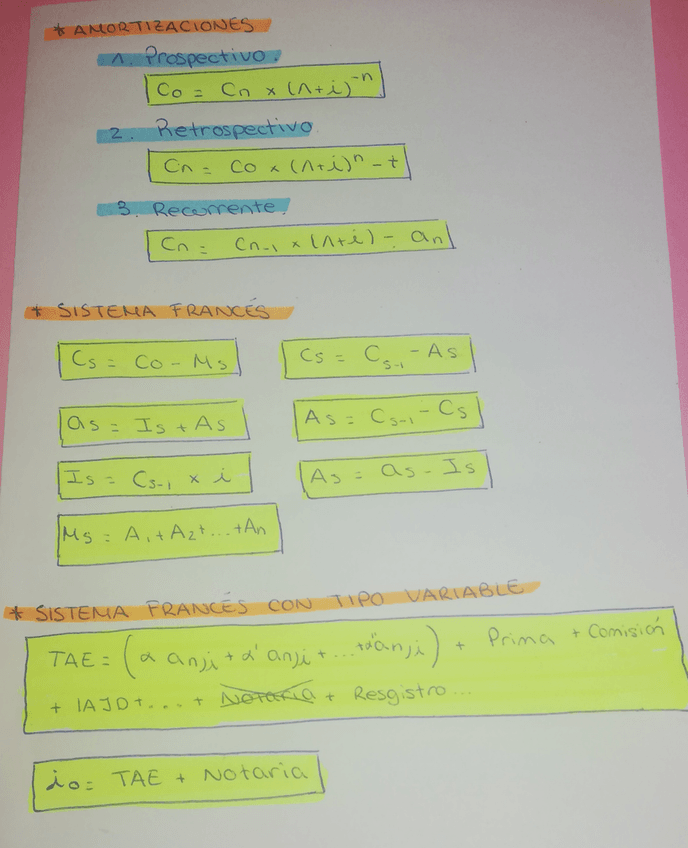 * AMORTIZACIONES
1. Prospectivo.
Co = Cn x (1+i)^-n
2. Retrospectivo.
Cn = Co x (1+i)^n - t
3. Recurrente.
Cn = Cn-1 x (1+i) - an
* SISTEMA FRANCÉS
Cs = Co - Ms
Cs = Cs-1 - As
as = Is + As
As = Cs-1 - Cs
Is = Cs-1 x i
As = as - Is
Ms = A1 + A2 + ... + An
* SISTEMA FRANCÉS CON TIPO VARIABLE
TAE = (α an˥i + α' an˥i + ... + α'' an˥i) + Prima + Comisión
+ IAJD + ... + Notaria + Resgistro...
io = TAE + Notaria